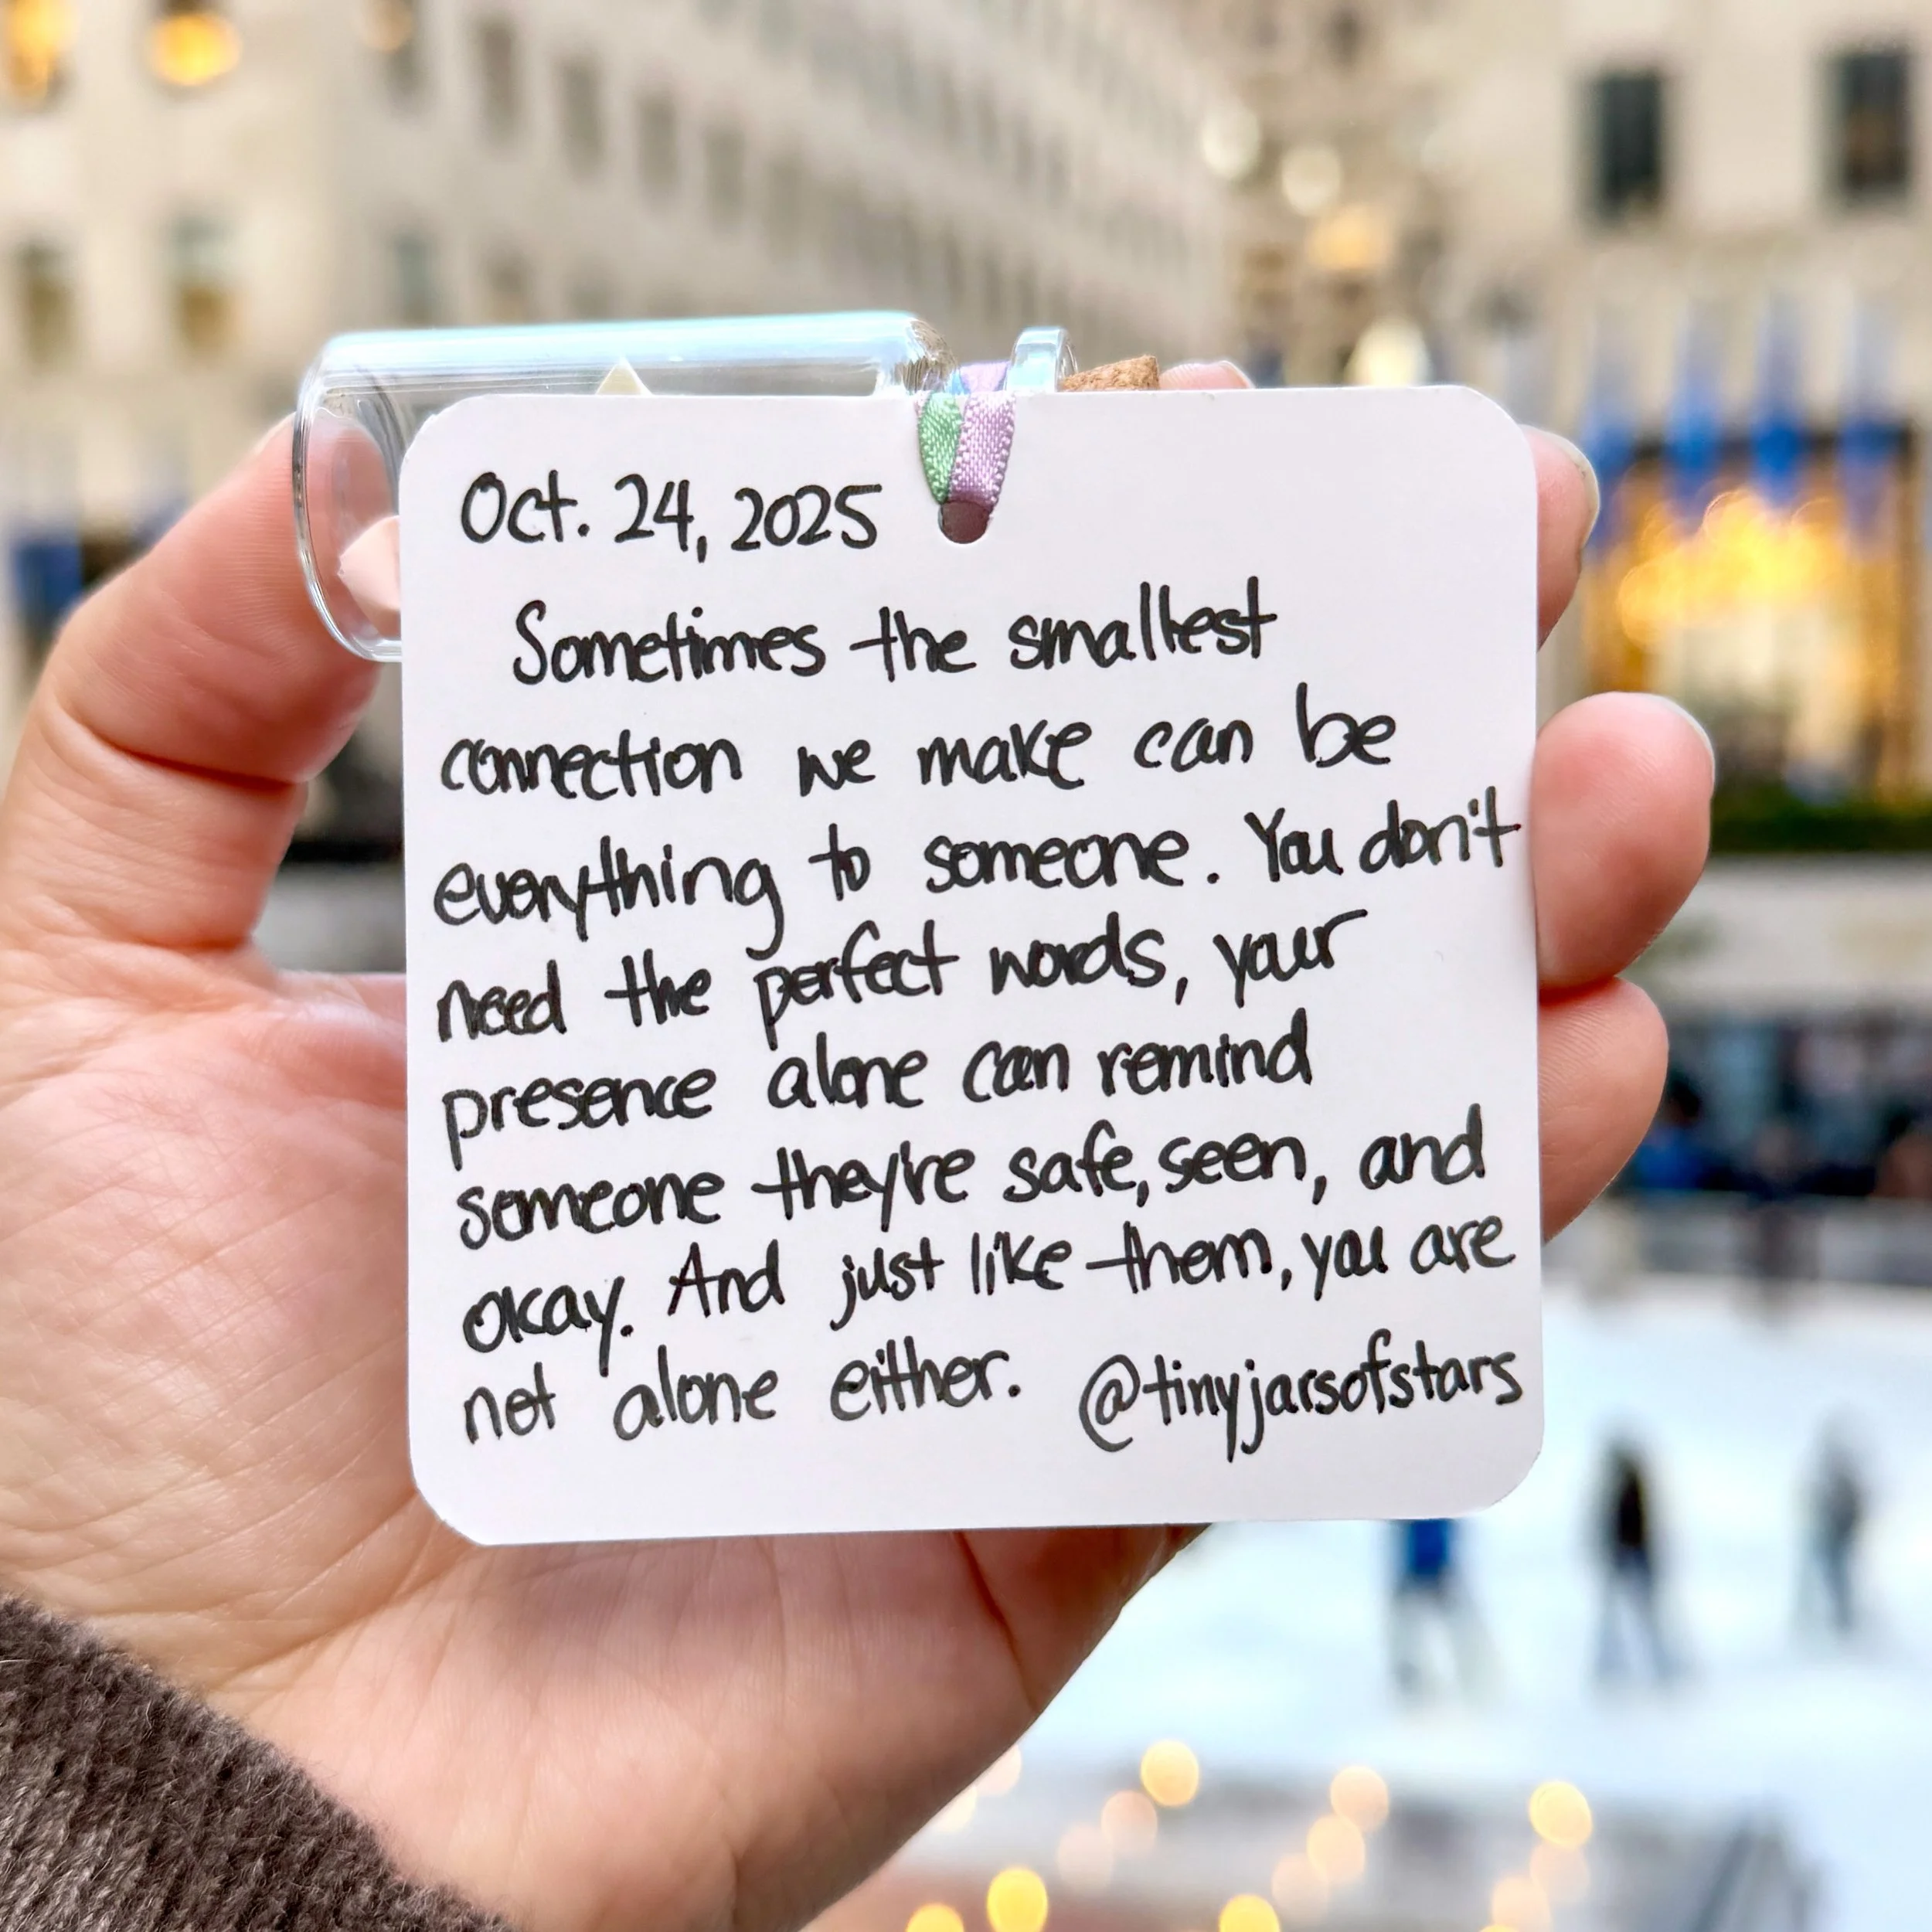 Oct. 24, 2025
Sometimes the smallest
connection we make can be
everything to someone. You don't
need the perfect words, your
presence alone can remind
someone they're safe, seen, and
okay. And just like them, you are
not alone either. @tinyjarsofstars